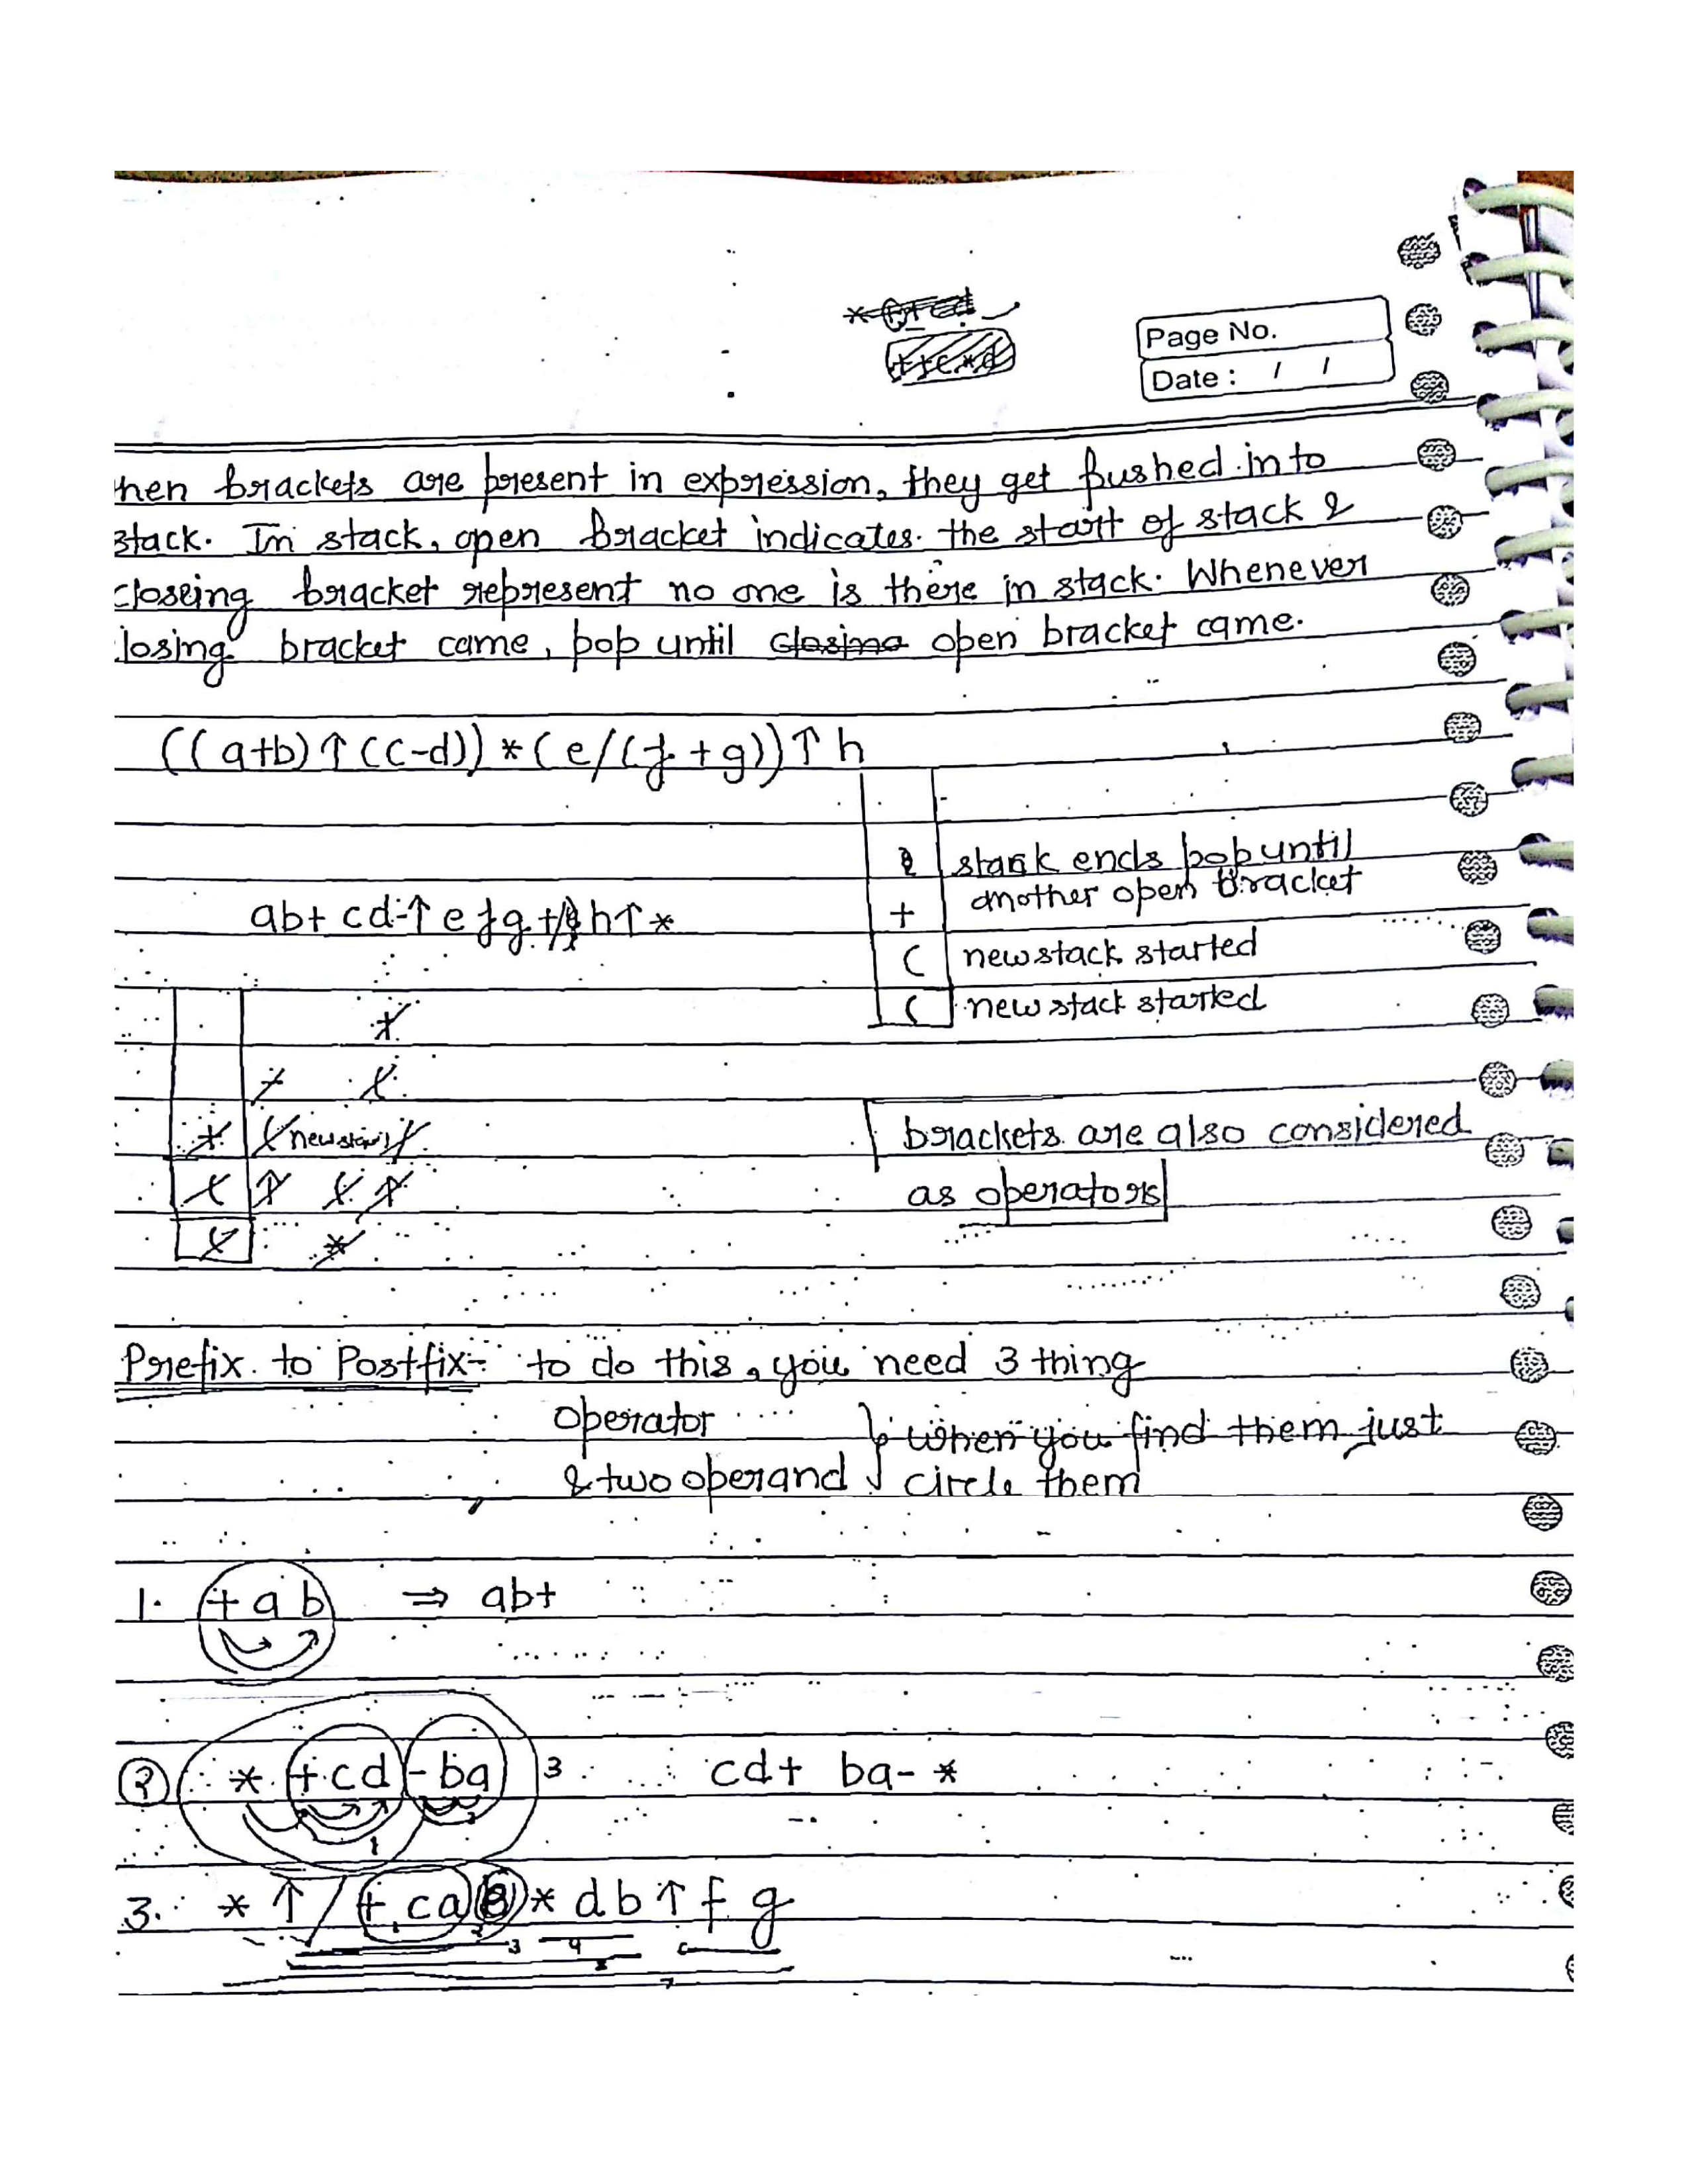 Page No.
Date : / /
hen brackets are present in expression, they get pushed into
stack. In stack, open bracket indicates the start of stack &
closeing bracket represent no one is there in stack. Whenever
losing bracket came, pop until closing open bracket came.
((a+b)↑(c-d))*(e/(f+g))↑h
stack ends pop until
another open bracket
ab+ cd-↑ efg+/h↑*
+
( new stack started
( new stack started
new start
brackets are also considered
as operators
Prefix to Postfix- to do this, you need 3 thing
operator
when you find them just
& two operand
circle them
1. +ab ⇒ ab+
2 * +cd -ba 3 cd+ ba- *
3. * ↑ / + ca * db ↑ f g